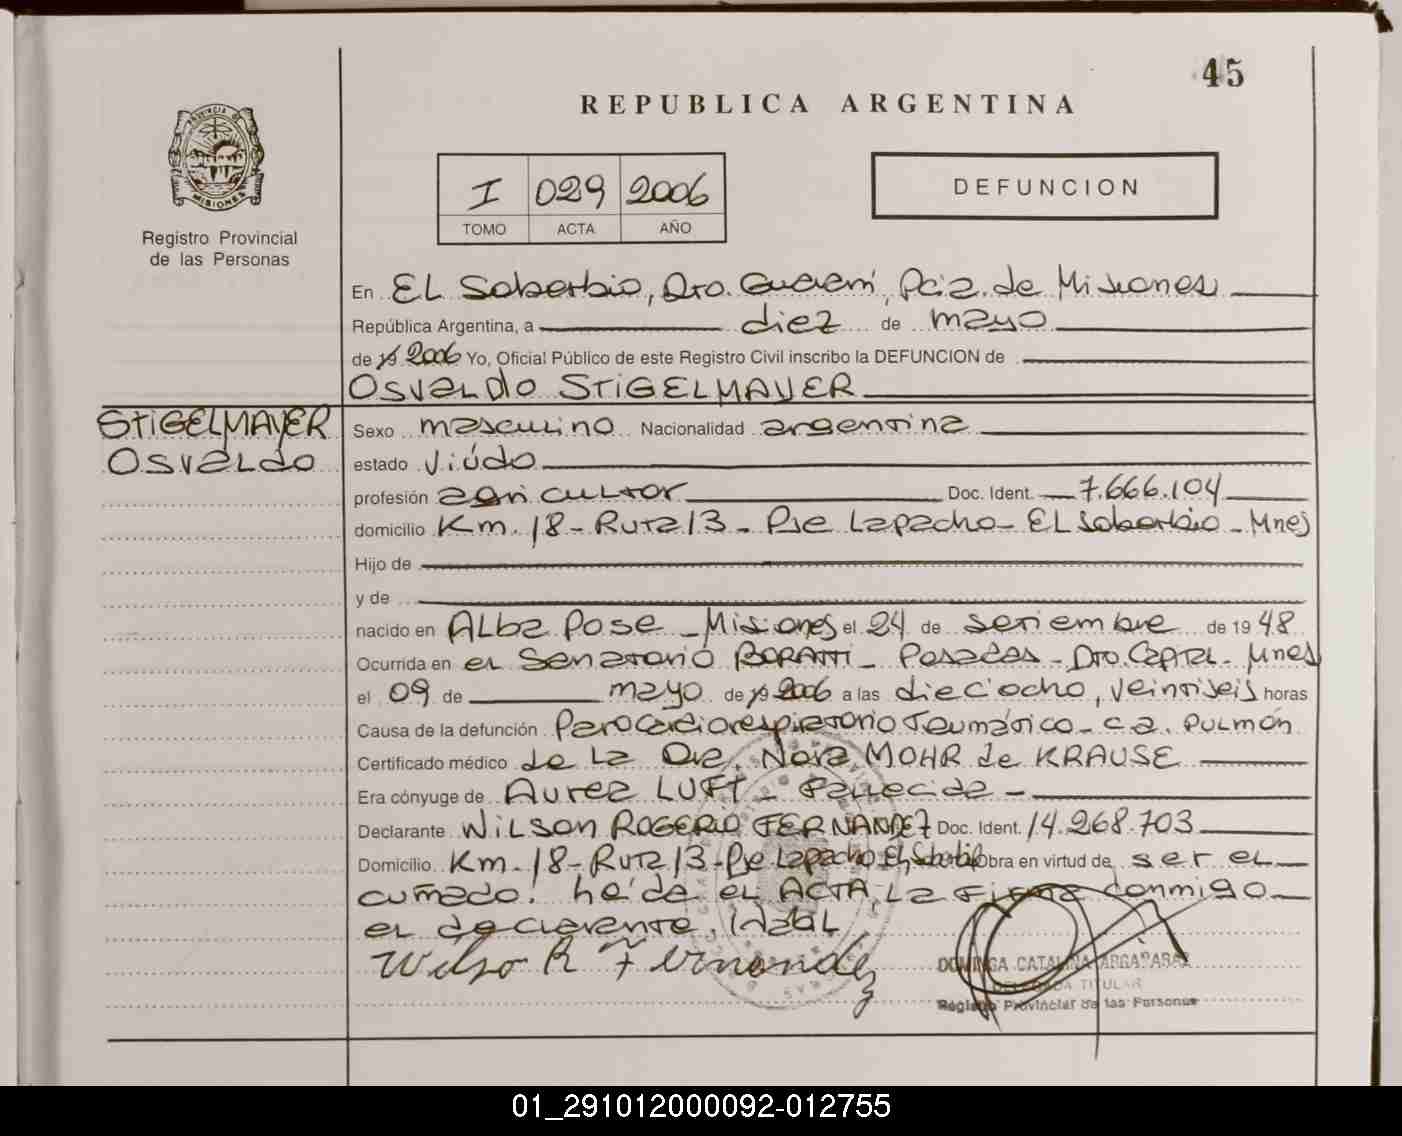 45
REPUBLICA ARGENTINA
PROVINCIA DE
MISIONES
Registro Provincial
de las Personas
I 029 2006
TOMO ACTA AÑO
DEFUNCION
En EL Soberbio, Dto. Guaraní, Pcia. de Misiones
República Argentina, a diez de mayo
de 19 2006 Yo, Oficial Público de este Registro Civil inscribo la DEFUNCION de
OSVALDO STIGELMAYER
STIGELMAYER
OSVALDO
Sexo masculino Nacionalidad argentina
estado Viúdo
profesión agricultor Doc. Ident. 7.666.104
domicilio Km. 18 - Ruta 13 - Pje Lapacho - EL Soberbio - Mnes
Hijo de
y de
nacido en ALba Pose - Misiones el 24 de setiembre de 1948
Ocurrida en el Sanatorio BORATTI - Posadas - Dto. Capital - Mnes
el 09 de mayo de 19 2006 a las dieciocho, veintiseis horas
Causa de la defunción Parocardiorespiratorio Traumático - ca. Pulmón
Certificado médico de La Dra. Nora MOHR de KRAUSE
Era cónyuge de Aurea LUFT - Fallecida -
Declarante WILSON ROGERIO FERNANDEZ Doc. Ident. 14.268.703
Domicilio Km. 18 - Ruta 13 - Pje Lapacho El Soberbio Obra en virtud de ser el
cuñado. heída el ACTA, La firma conmigo
el declarante,
Wilso R Fernandez
DOMINGA CATALINA ARGAÑARAZ
DELEGADA TITULAR
Registro Provincial de las Personas
01_291012000092-012755